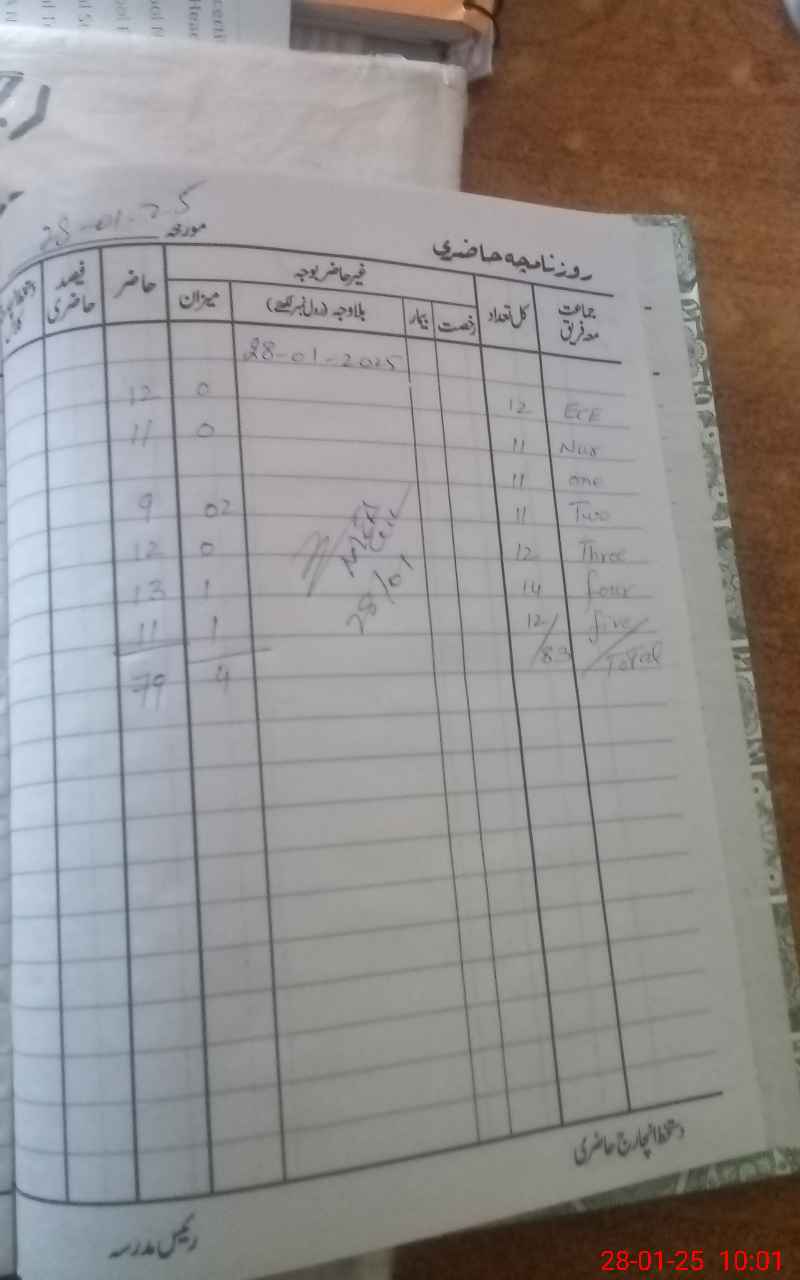 روزنامچہ حاضری
مورخہ 28-01-25
جماعت معہ فریق کل تعداد غیر حاضر بوجہ حاضر فیصد حاضری
رخصت بیمار بلاوجہ (رول نمبر لکھیے) میزان
28-01-2025
ECE 12 0 12
Nur 11 0 11
one 11
Two 11 02 9
Three 12 0 12
four 14 1 13
five 12 1 11
Total 83 4 79
28/01
دستخط انچارج حاضری
رئیس مدرسہ
28-01-25 10:01